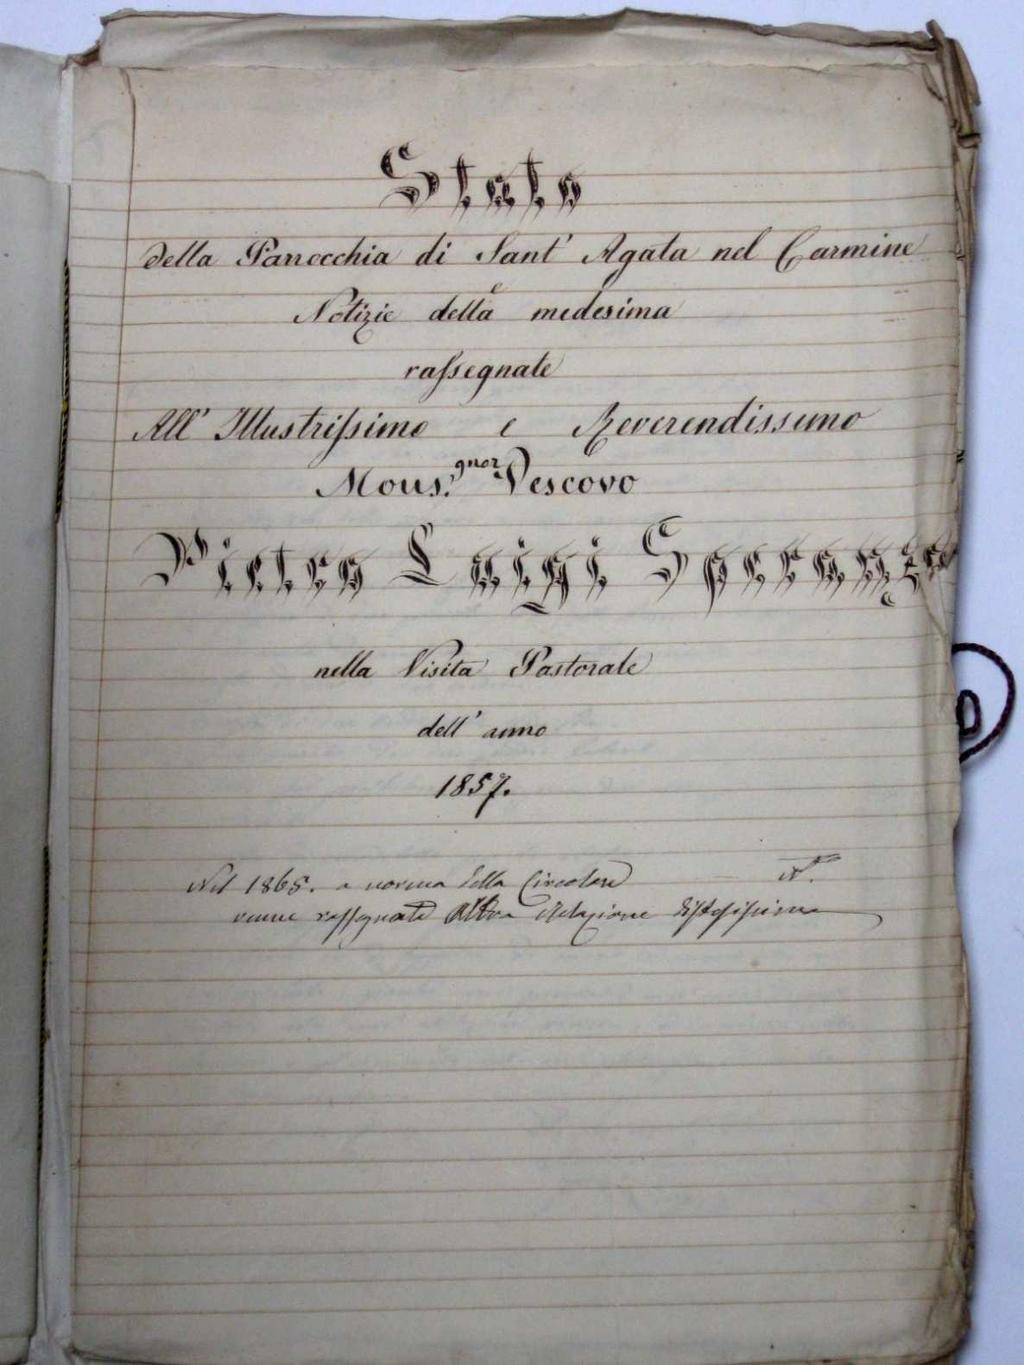 Stato
della Parrocchia di Sant' Agata nel Carmine
e
Notizie della medesima
rassegnate
All' Illustrissimo e Reverendissimo
Mons.gnor Vescovo
Pietro Luigi Speranza
nella Visita Pastorale
dell' anno
1857.
Nel 1865. a norma della Circolare N.
venne rassegnata altra Relazione